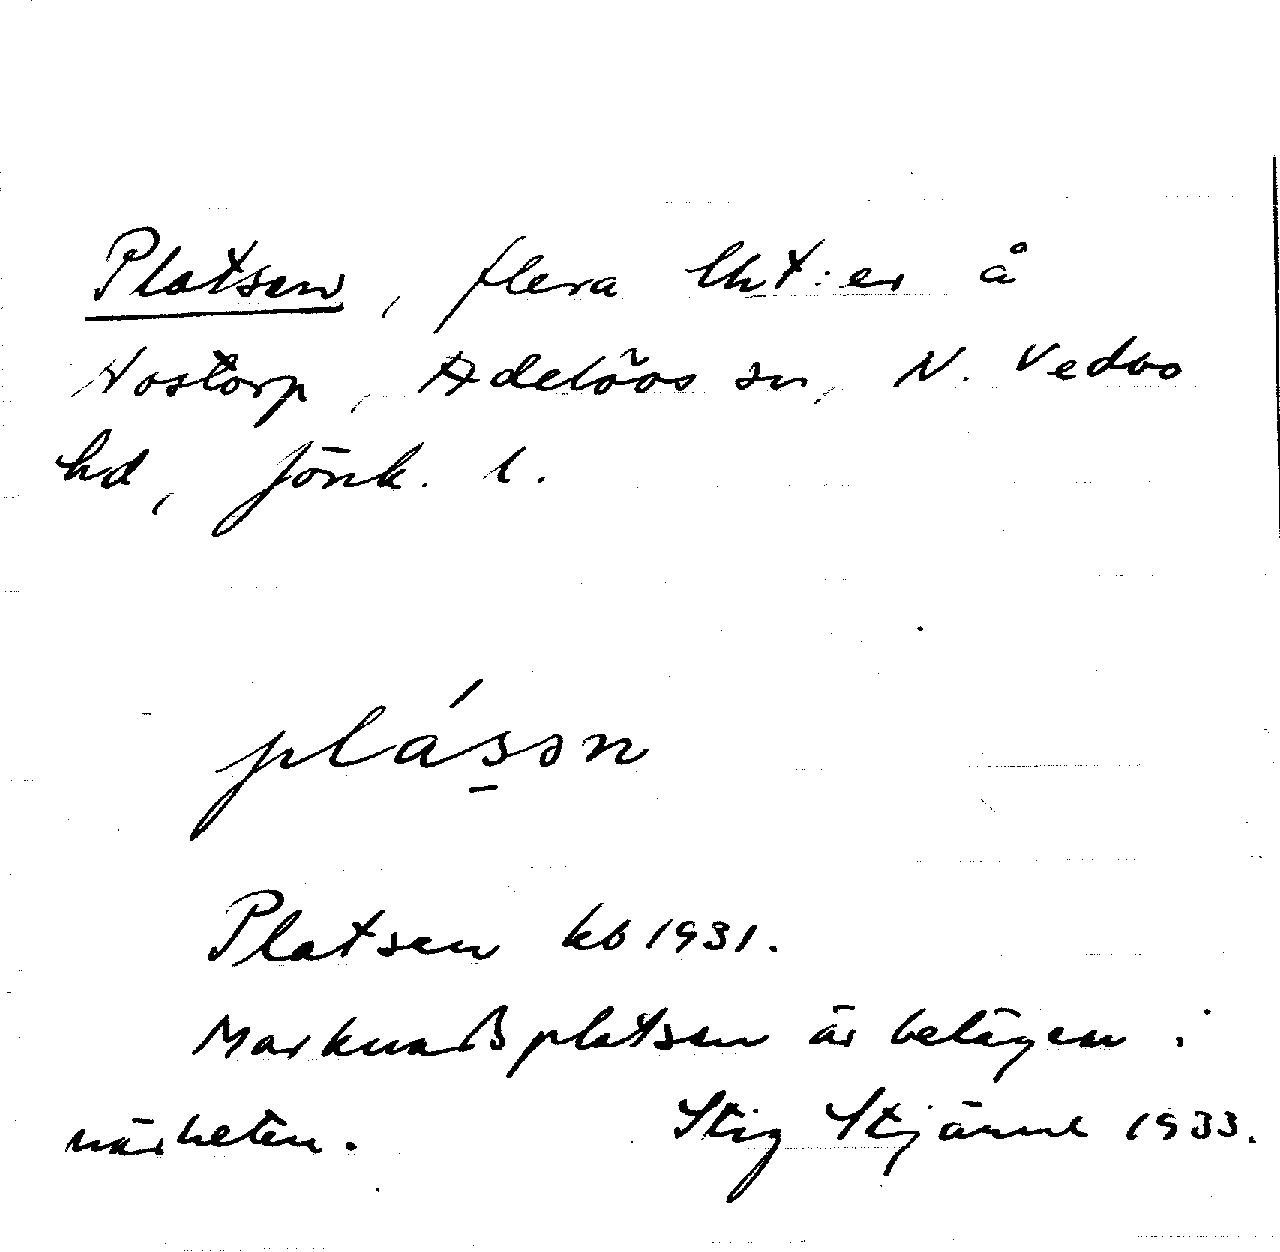 Platsen, flera lht:er å
Nostorp, Adelövs sn, N. Vedbo
hd, Jönk. l.
plássn
Platsen kb 1931.
Marknadsplatsen är belägen i
närheten. Stig Stjärne 1933.